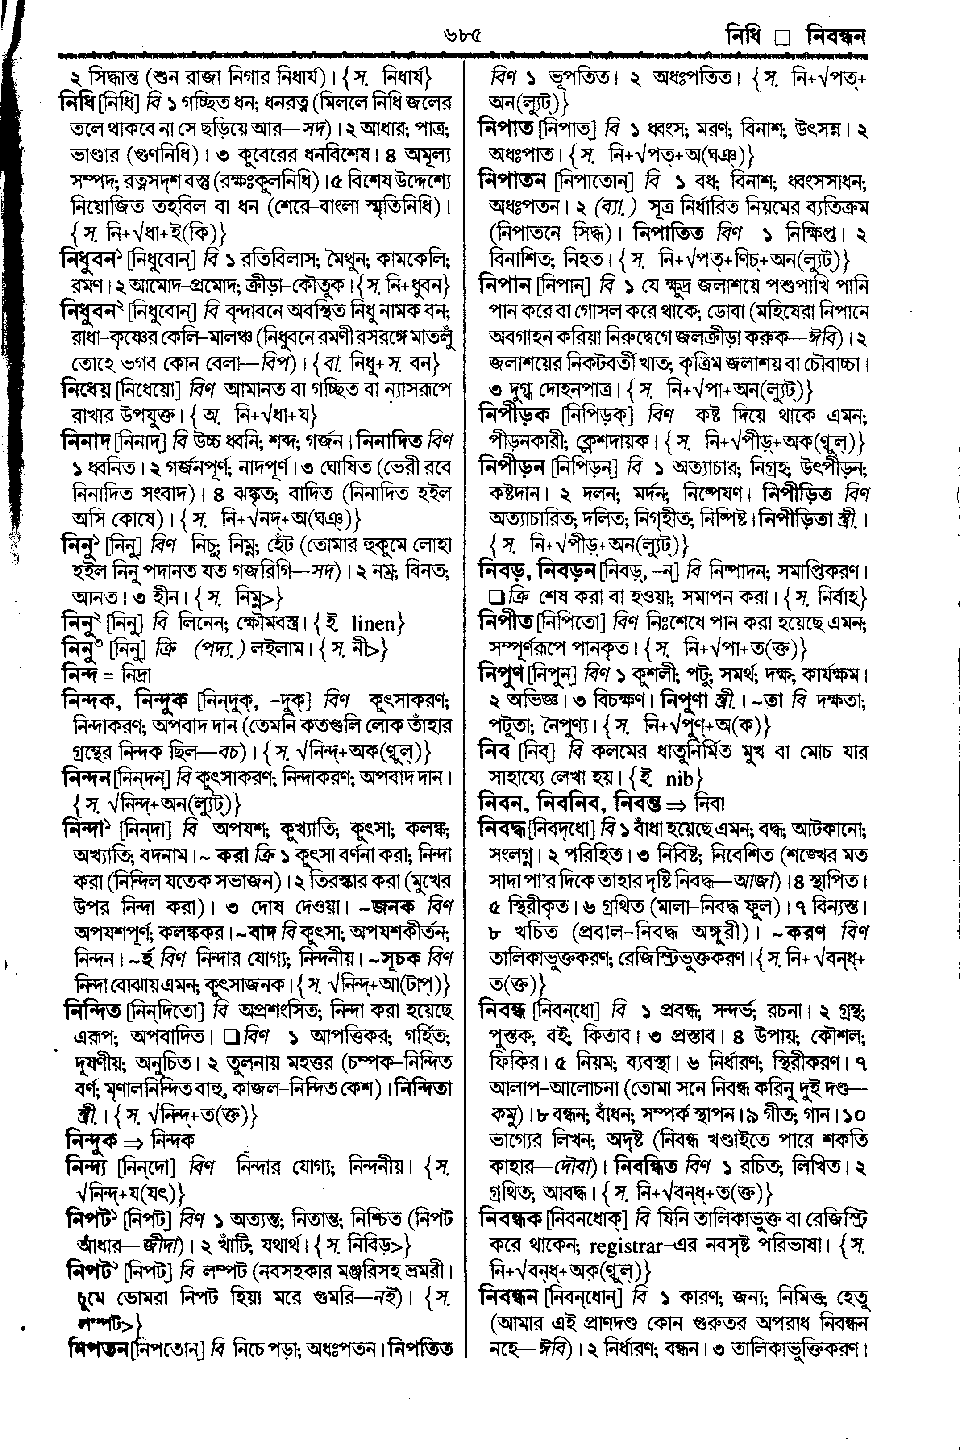 ৬৮৫
নিধি □ নিবন্ধন
২ সিদ্ধান্ত (শুন রাজা নিগার নিধার্য)। {স. নিধার্য}
নিধি [নিধি] বি ১ গচ্ছিত ধন; ধনরত্ন (মিললে নিধি জলের
তলে থাকবে না সে ছড়িয়ে আর—সদ)। ২ আধার; পাত্র;
ভাণ্ডার (গুণনিধি)। ৩ কুবেরের ধনবিশেষ। ৪ অমূল্য
সম্পদ; রত্নসদৃশ বস্তু (রক্ষঃকুলনিধি)। ৫ বিশেষ উদ্দেশ্যে
নিয়োজিত তহবিল বা ধন (শেরে-বাংলা স্মৃতিনিধি)।
{স. নি+√ধা+ই(কি)}
নিধুবন১ [নিধুবোন্] বি ১ রতিবিলাস; মৈথুন; কামকেলি;
রমণ। ২ আমোদ-প্রমোদ; ক্রীড়া-কৌতুক। {স. নি+ধুবন}
নিধুবন২ [নিধুবোন্] বি বৃন্দাবনে অবস্থিত নিধু নামক বন;
রাধা-কৃষ্ণের কেলি-মালঞ্চ (নিধুবনে রমণী রসরঙ্গে মাতলুঁ
তোহে ভগব কোন বেলা—বিপ)। {বা. নিধু+স. বন}
নিধেয় [নিধেয়ো] বিণ আমানত বা গচ্ছিত বা ন্যাসরূপে
রাখার উপযুক্ত। {অ. নি+√ধা+য}
নিনাদ [নিনাদ্] বি উচ্চ ধ্বনি; শব্দ; গর্জন। নিনাদিত বিণ
১ ধ্বনিত। ২ গর্জনপূর্ণ; নাদপূর্ণ। ৩ ঘোষিত (ভেরী রবে
নিনাদিত সংবাদ)। ৪ ঝঙ্কৃত; বাদিত (নিনাদিত হইল
অসি কোষে)। {স. নি+√নদ্+অ(ঘঞ)}
নিনু১ [নিনু] বিণ নিচু; নিম্ন; হেঁট (তোমার হুকুমে লোহা
হইল নিনু পদানত যত গজরিগি—সদ)। ২ নম্র; বিনত;
আনত। ৩ হীন। {স. নিম্ন>}
নিনু২ [নিনু] বি লিনেন; ক্ষৌমবস্ত্র। {ই. linen}
নিনু৩ [নিনু] ক্রি (পদ্য.) লইলাম। {স. নী>}
নিন্দ = নিদ্রা
নিন্দক, নিন্দুক [নিন্‌দুক্, -দুক্] বিণ কুৎসাকরণ;
নিন্দাকরণ; অপবাদ দান (তেমনি কতগুলি লোক তাঁহার
গ্রন্থের নিন্দক ছিল—বচ)। {স. √নিন্দ্+অক(ণ্বুল)}
নিন্দন [নিন্‌দন্] বি কুৎসাকরণ; নিন্দাকরণ; অপবাদ দান।
{স. √নিন্দ্+অন(ল্যুট)}
নিন্দা১ [নিন্‌দা] বি অপযশ; কুখ্যাতি; কুৎসা; কলঙ্ক;
অখ্যাতি; বদনাম। ~ করা ক্রি ১ কুৎসা বর্ণনা করা; নিন্দা
করা (নিন্দিল যতেক সভাজন)। ২ তিরস্কার করা (মুখের
উপর নিন্দা করা)। ৩ দোষ দেওয়া। ~জনক বিণ
অপযশপূর্ণ; কলঙ্ককর। ~বাদ বি কুৎসা; অপযশকীর্তন;
নিন্দন। ~র্হ বিণ নিন্দার যোগ্য; নিন্দনীয়। ~সূচক বিণ
নিন্দা বোঝায় এমন; কুৎসাজনক। {স. √নিন্দ্+আ(টাপ্)}
নিন্দিত [নিন্‌দিতো] বি অপ্রশংসিত; নিন্দা করা হয়েছে
এরূপ; অপবাদিত। □ বিণ ১ আপত্তিকর; গর্হিত;
দূষণীয়; অনুচিত। ২ তুলনায় মহত্তর (চম্পক-নিন্দিত
বর্ণ; মৃণালনিন্দিত বাহু, কাজল-নিন্দিত কেশ)। নিন্দিতা
স্ত্রী.। {স. √নিন্দ্+ত(ক্ত)}
নিন্দুক ⇒ নিন্দক
নিন্দ্য [নিন্‌দো] বিণ নিন্দার যোগ্য; নিন্দনীয়। {স.
√নিন্দ্+য(যৎ)}
নিপট১ [নিপট] বিণ ১ অত্যন্ত; নিতান্ত; নিশ্চিত (নিপট
আঁধার—জীদা)। ২ খাঁটি; যথার্থ। {স. নিবিড়>}
নিপট২ [নিপট] বি লম্পট (নবসহকার মঞ্জরিসহ ভ্রমরী।
চুমে ভোমরা নিপট হিয়া মরে গুমরি—নই)। {স.
লম্পট>}
নিপতন [নিপতোন্] বি নিচে পড়া; অধঃপতন। নিপতিত
বিণ ১ ভূপতিত। ২ অধঃপতিত। {স. নি+√পত্+
অন(ল্যুট)}
নিপাত [নিপাত্] বি ১ ধ্বংস; মরণ; বিনাশ; উৎসন্ন। ২
অধঃপাত। {স. নি+√পত্+অ(ঘঞ)}
নিপাতন [নিপাতোন্] বি ১ বধ; বিনাশ; ধ্বংসসাধন;
অধঃপতন। ২ (ব্যা.) সূত্র নির্ধারিত নিয়মের ব্যতিক্রম
(নিপাতনে সিদ্ধ)। নিপাতিত বিণ ১ নিক্ষিপ্ত। ২
বিনাশিত; নিহত। {স. নি+√পত্+ণিচ্+অন(ল্যুট)}
নিপান [নিপান্] বি ১ যে ক্ষুদ্র জলাশয়ে পশুপাখি পানি
পান করে বা গোসল করে থাকে; ডোবা (মহিষেরা নিপানে
অবগাহন করিয়া নিরুদ্বেগে জলক্রীড়া করুক—ঈবি)। ২
জলাশয়ের নিকটবর্তী খাত; কৃত্রিম জলাশয় বা চৌবাচ্চা।
৩ দুগ্ধ দোহনপাত্র। {স. নি+√পা+অন(ল্যুট)}
নিপীড়ক [নিপিড়ক্] বিণ কষ্ট দিয়ে থাকে এমন;
পীড়নকারী; ক্লেশদায়ক। {স. নি+√পীড়্+অক(ণ্বুল)}
নিপীড়ন [নিপিড়ন] বি ১ অত্যাচার; নিগ্রহ; উৎপীড়ন;
কষ্টদান। ২ দলন; মর্দন; নিষ্পেষণ। নিপীড়িত বিণ
অত্যাচারিত; দলিত; নিগৃহীত; নিষ্পিষ্ট। নিপীড়িতা স্ত্রী.।
{স. নি+√পীড়্+অন(ল্যুট)}
নিবড়, নিবড়ন [নিবড়্, -ন্] বি নিষ্পাদন; সমাপ্তিকরণ।
□ ক্রি শেষ করা বা হওয়া; সমাপন করা। {স. নির্বাহ}
নিপীত [নিপিতো] বিণ নিঃশেষে পান করা হয়েছে এমন;
সম্পূর্ণরূপে পানকৃত। {স. নি+√পা+ত(ক্ত)}
নিপুণ [নিপুন্] বিণ ১ কুশলী; পটু; সমর্থ; দক্ষ; কার্যক্ষম।
২ অভিজ্ঞ। ৩ বিচক্ষণ। নিপুণা স্ত্রী.। ~তা বি দক্ষতা;
পটুতা; নৈপুণ্য। {স. নি+√পুণ্+অ(ক)}
নিব [নিব্] বি কলমের ধাতুনির্মিত মুখ বা মোচ যার
সাহায্যে লেখা হয়। {ই. nib}
নিবন, নিবনিব, নিবন্ত ⇒ নিবা
নিবদ্ধ [নিবদ্‌ধো] বি ১ বাঁধা হয়েছে এমন; বদ্ধ; আটকানো;
সংলগ্ন। ২ পরিহিত। ৩ নিবিষ্ট; নিবেশিত (শঙ্খের মত
সাদা পা'র দিকে তাহার দৃষ্টি নিবদ্ধ—আজা)। ৪ স্থাপিত।
৫ স্থিরীকৃত। ৬ গ্রথিত (মালা-নিবদ্ধ ফুল)। ৭ বিন্যস্ত।
৮ খচিত (প্রবাল-নিবদ্ধ অঙ্গুরী)। ~করণ বিণ
তালিকাভুক্তকরণ; রেজিস্ট্রিভুক্তকরণ। {স. নি+√বন্ধ্+
ত(ক্ত)}
নিবন্ধ [নিবন্‌ধো] বি ১ প্রবন্ধ; সন্দর্ভ; রচনা। ২ গ্রন্থ;
পুস্তক; বই; কিতাব। ৩ প্রস্তাব। ৪ উপায়; কৌশল;
ফিকির। ৫ নিয়ম; ব্যবস্থা। ৬ নির্ধারণ; স্থিরীকরণ। ৭
আলাপ-আলোচনা (তোমা সনে নিবন্ধ করিনু দুই দণ্ড—
কমু)। ৮ বন্ধন; বাঁধন; সম্পর্ক স্থাপন। ৯ গীত; গান। ১০
ভাগ্যের লিখন; অদৃষ্ট (নিবন্ধ খণ্ডাইতে পারে শকতি
কাহার—দৌবা)। নিবন্ধিত বিণ ১ রচিত; লিখিত। ২
গ্রথিত; আবদ্ধ। {স. নি+√বন্ধ্+ত(ক্ত)}
নিবন্ধক [নিবন্‌ধোক্] বি যিনি তালিকাভুক্ত বা রেজিস্ট্রি
করে থাকেন; registrar-এর নবসৃষ্ট পরিভাষা। {স.
নি+√বন্ধ্+অক(ণ্বুল)}
নিবন্ধন [নিবন্‌ধোন্] বি ১ কারণ; জন্য; নিমিত্ত; হেতু
(আমার এই প্রাণদণ্ড কোন গুরুতর অপরাধ নিবন্ধন
নহে—ঈবি)। ২ নির্ধারণ; বন্ধন। ৩ তালিকাভুক্তিকরণ।